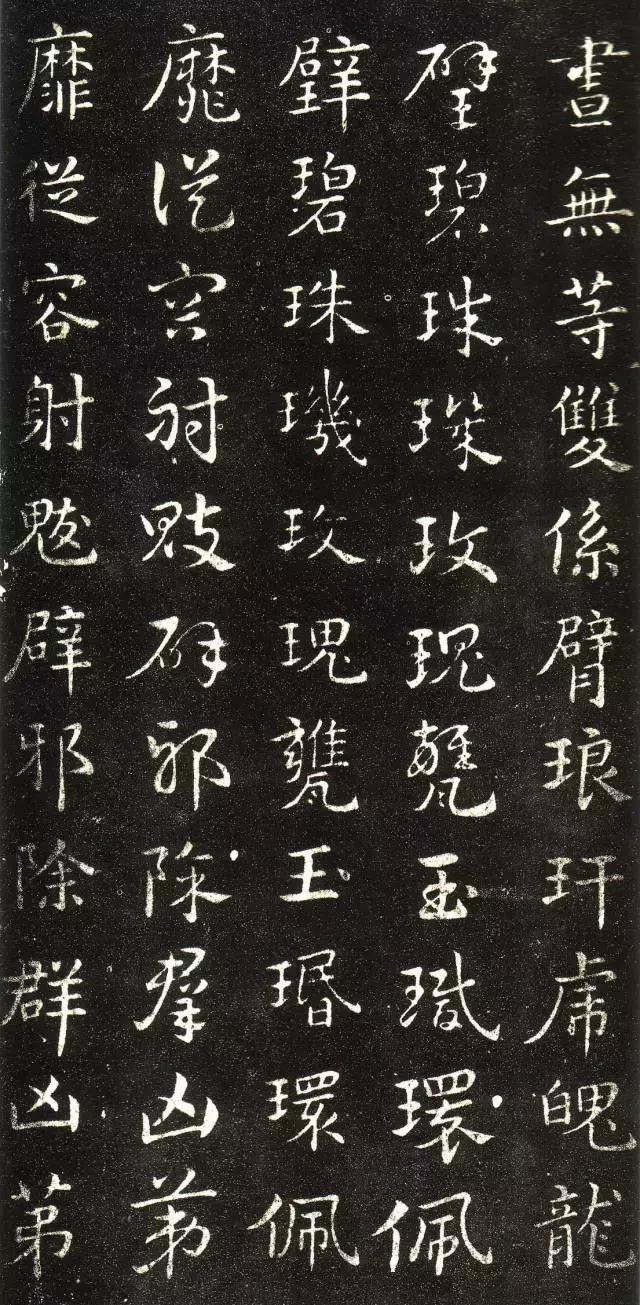 畫無等雙係臂琅玕虎魄龍
璧碧珠璣玫瑰甕玉瑉環佩
璧碧珠璣玫瑰甕玉瑉環佩
靡從容射魃辟邪除群凶第
靡從容射魃辟邪除群凶第